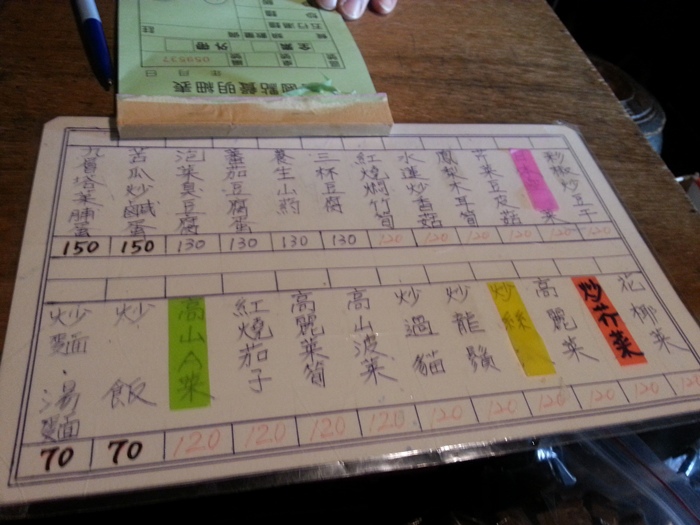 點餐明細表
年 月 日
059537
外帶
炒椒炒豆干
芹菜豆皮菇
鳳梨木耳筍
水蓮炒香菇
紅燒燜竹筍
三杯豆腐
養生山药
蕃茄豆腐蛋
泡菜臭豆腐
苦瓜炒鹹蛋
九層塔菜脯蛋
150 150 130 130 130 130 120 120 120 120 120 120
花椰菜
炒芥菜
高麗菜
炒絲
炒龍鬚
炒過貓
高山波菜
高麗菜筍
紅燒茄子
高山A菜
炒飯
炒麵 湯麵
70 70 120 120 120 120 120 120 120 120 120 120